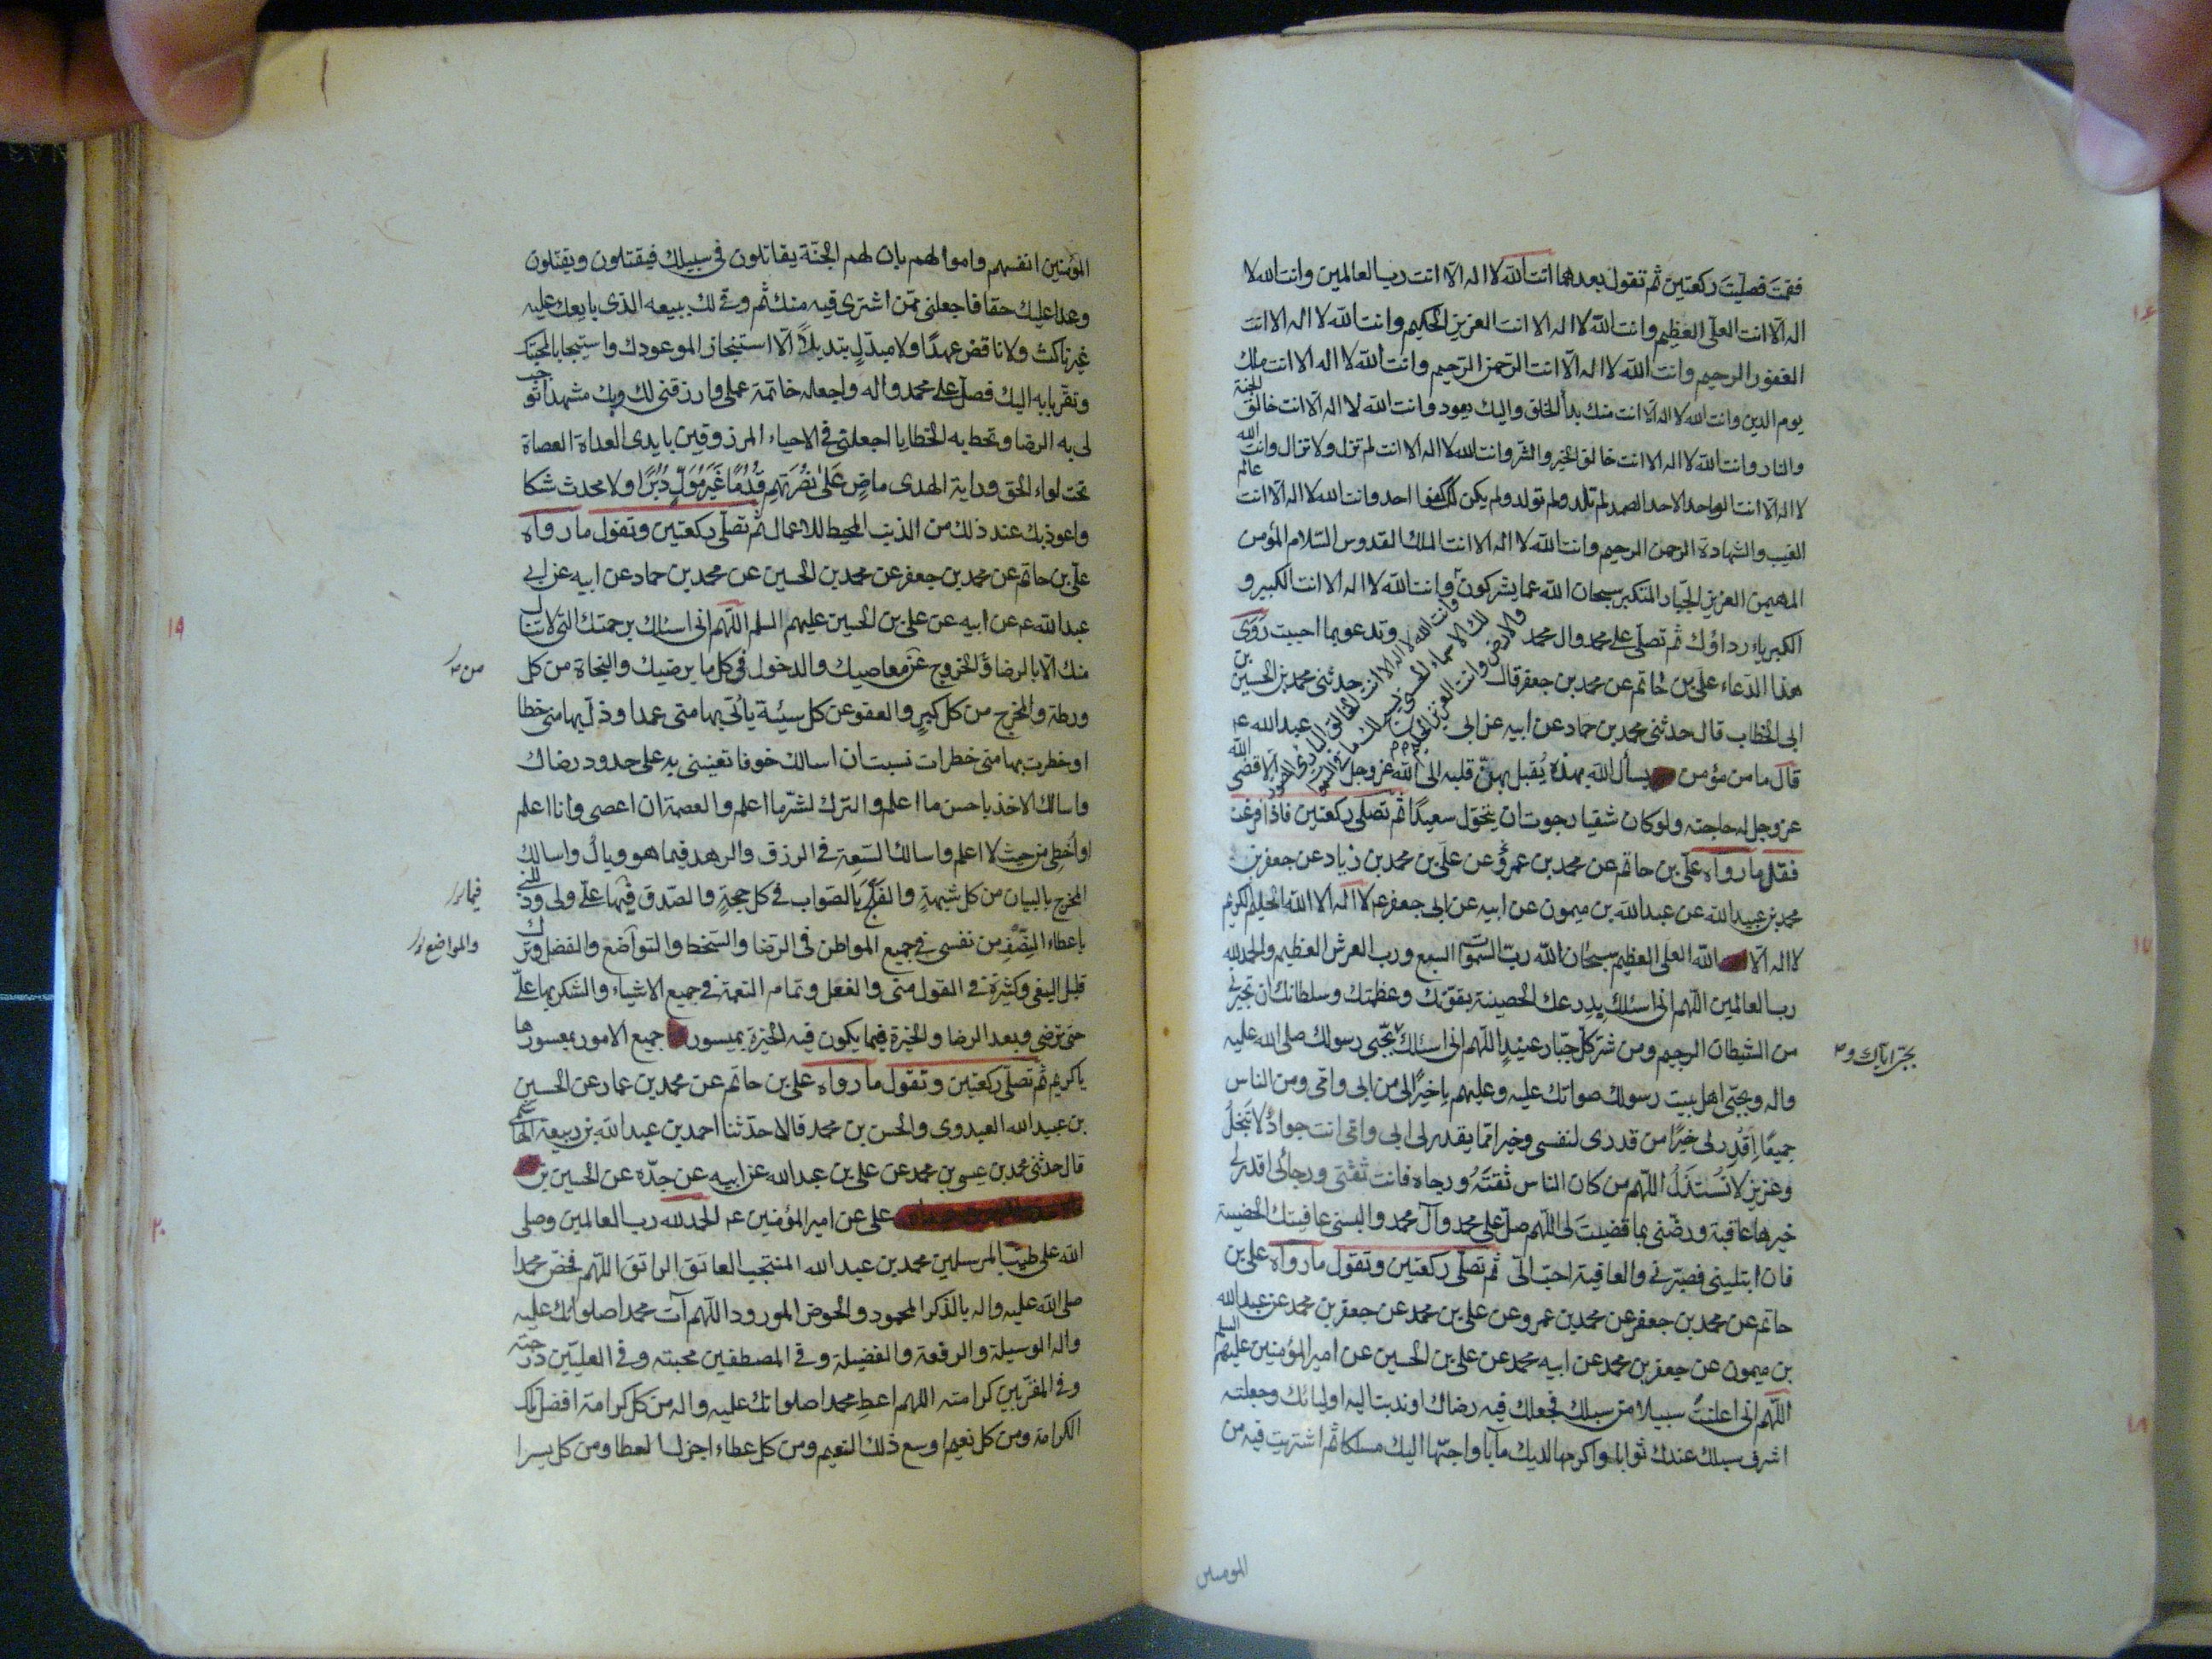 فقمت فصليت ركعتين ثم تقول بعدهما انت الله لا اله الا انت رب العالمين وانت الله لا
اله الا انت العلى العظيم وانت الله لا اله الا انت العزيز الحكيم وانت الله لا اله الا انت
الغفور الرحيم وانت الله لا اله الا انت الرحمن الرحيم وانت الله لا اله الا انت ملك
يوم الدين وانت الله لا اله الا انت منك بدأ الخلق واليك يعود وانت الله لا اله الا انت خالق الجنة
والنار وانت الله لا اله الا انت خالق الخير والشر وانت الله لا اله الا انت لم تزل ولا تزال وانت الله
لا اله الا انت الواحد الاحد الصمد لم تلد ولم تولد ولم يكن لك كفوا احد وانت الله لا اله الا انت عالم
الغيب والشهادة الرحمن الرحيم وانت الله لا اله الا انت الملك القدوس السلام المؤمن
المهيمن العزيز الجبار المتكبر سبحان الله عما يشركون وانت الله لا اله الا انت الكبير و
الكبرياء رداؤك ثم تصلى على محمد وال محمد وتدعو بما احببت رَوَى
وانت الله لا اله الا انت الخالق البارئ المصور
لك الاسماء الحسنى يسبح لك ما فى السموات
والارض وانت العزيز الحكيم
هذا الدعاء على بن حاتم عن محمد بن جعفر قال حدثنى محمد بن الحسين بن
ابى الخطاب قال حدثنى محمد بن حماد عن ابيه عن ابى عبد الله ع
قال ما من مؤمن يسأل الله بهذه يُقبل بهنّ قلبه الى الله عز وجل الا قضى الله
عز وجل له حاجته ولو كان شقيا رجوت ان يتحوّل سعيدًا ثم تصلى ركعتين فاذا فرغت
فقل ما رواه على بن حاتم عن محمد بن عمرو عن على بن محمد بن زياد عن جعفر بن
محمد بن عبيد الله عن عبد الله بن ميمون عن ابيه عن ابى جعفر ع لا اله الا الله الحليم الكريم
لا اله الا الله العلى العظيم سبحان الله ربّ السموات السبع ورب العرش العظيم والحمد لله
رب العالمين اللهم انى اسئلك بدرعك الحصينة بقوّتك وعظمتك وسلطانك ان تجيرنى
من الشيطان الرجيم ومن شرّ كلّ جبّار عنيدٍ اللهم انى اسئلك بحبّى رسولك صلى الله عليه
بحبّى اياك و
واله وبحبّى اهل بيت رسولك صواتك عليه وعليهم يا خيرًا لى من ابى وامّى ومن الناس
جميعًا اِقدِر لى خيرًا من قدرى لنفسى وخيرا ممّا يقدر لى ابى وامّى انت جوادٌ لا تَبخَلُ
وعزيز لا تُستذَلُّ اللّهم من كان الناس ثقتَهُ ورجاه فانت ثقتى ورجائى اقدر لى
خيرها عاقبة ورضّنى بما قضيت لى اللهم صل على محمد وآل محمد والبسنى عافيتك الحصينة
فان ابتليتنى فصبّرنى والعافية احبّ الىّ ثم تصلّى ركعتين وتقول ما رواه على بن
حاتم عن محمد بن جعفر عن محمد بن عمرو عن على بن محمد عن جعفر بن محمد عن عبد الله
بن ميمون عن جعفر بن محمد عن ابيه محمد عن على بن الحسين عن امير المؤمنين عليهم السلم
اللهم انى اعلنت سبيلا من سبلك فجعلك فيه رضاك او ندبت اليه اوليائك وجعلته
اشرف سبلك عندك ثوابا واكرمها لديك مآبا واحبّها اليك مسلكا ثم اشتريت فيه من
المومنين
المؤمنين انفسهم واموالهم بان لهم الجنّة يقاتلون فى سبيلك فيقتلون ويقتلون
وعدا عليك حقا فاجعلنى ممّن اشترى فيه منك ثم وفى لك ببيعه الذى بايعك عليه
غير ناكث ولا ناقض عهدًا ولا مبدّل تبديلاً الّا استنجاز الموعودك واستيجابا لمحبّتك
وتقربا به اليك فصل على محمد واله واجعله خاتمة عملى وارزقنى لك وبك مشهدا توجب
لى به الرضا وتحط به الخطايا اجعلنى فى الاحياء المرزوقين بايدى العداة العصاة
تحت لواء الحق وراية الهدى ماضٍ عَلىٰ نصْرَتهم قُدُمًا غيرَ مُوَلٍّ دُبُرًا ولا محدث شكا
واعوذ بك عند ذلك من الذنب المحيط للاعمال ثم تصلّى ركعتين وتقول ما رواه
على بن حاتم عن محمد بن جعفر عن محمد بن الحسين عن محمد بن حماد عن ابيه عن ابى
عبد الله ع عن ابيه عن على بن الحسين عليهم السلم اللّهم انى اسئلك برحمتك التى لا تنال
منك الّا بالرضا والخروج عن معاصيك والدخول فى كل ما يرضيك والنجاة من كل
من
ورطة والمخرج من كل كبيرٍ والعفو عن كل سيّئة يأتى بها منى عمدا وذلّ بها منى خطا
او خطرت بها منى خطرات نسيت ان اسالك خوفا تعيننى به على حدود رضاك
واسالك الاخذ باحسن ما اعلم والترك لشرّ ما اعلم والعصمة ان اعصى وانا اعلم
او اُخطى من حيث لا اعلم واسالك السّعة فى الرزق والزهد فيما هو وبال واسالك
المخرج بالبيان من كل شبهةٍ والفلج بالصّواب فى كل حجةٍ والصّدق فيها علىّ ولى وذللنى
فيما
باعطاء النِصَف من نفسى فى جميع المواطن فى الرضا والسخط والتواضع والفضل وترك
والمواضع
قليل البغى وكثيره فى القول منى والفعل وتمام النعمة فى جميع الاشياء والشكر بها علىّ
حتى ترضى وبعد الرضا والخيرة فيما يكون فيه الخيرة بميسور جميع الامور بمعسورها
يا كريم ثم تصلّى ركعتين وتقول ما رواه على بن حاتم عن محمد بن عمار عن الحسين
بن عبيد الله العبدوى والحسن بن محمد قالا حدّثنا احمد بن عبد الله بن ربيعة الهاشمى
قال حدثنى محمد بن عيسى بن محمد عن على بن عبد الله عن ابيه عن جدّه عن الحسين بن
على عن امير المؤمنين ع الحمد لله رب العالمين وصلى
الله على طيّب المرسلين محمد بن عبد الله المنتجب الفاتق الراتق اللّهم فخصّ محمدا
صلى الله عليه واله بالذكر المحمود والحوض المورود اللّهم آت محمدا صلواتك عليه
واله الوسيلة والرفعة والفضيلة وفى المصطفين محبته وفى العليّين درجته
وفى المقرّبين كرامته اللهم اعطِ محمدا صلواتك عليه واله من كل كرامة افضل تلك
الكرامة ومن كل نعيم اوسع ذلك النعيم ومن كل عطاء اجزل العطا ومن كل يسرا